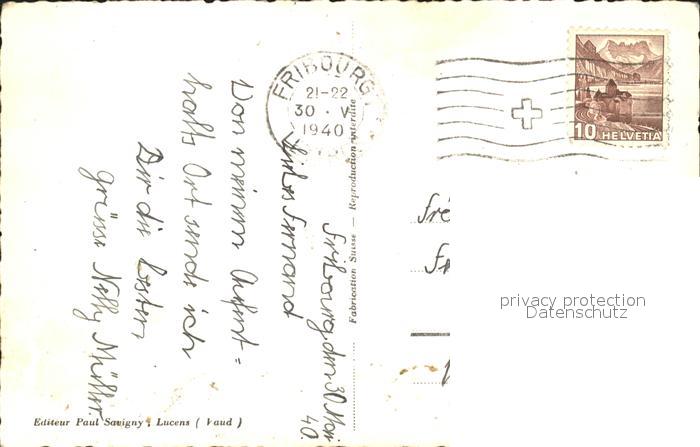 FRIBOURG
21-22
30 · V
1940
10 HELVETIA
Fribourg den 30 Mai
40.
Liebes Fernand
Von meinem Aufent=
halts Ort sende ich
Dir die besten
grüsse Nelly Müller.
Fabrication Suisse — Reproduction interdite
Editeur Paul Savigny, Lucens ( Vaud )
Fré
privacy protection
Datenschutz